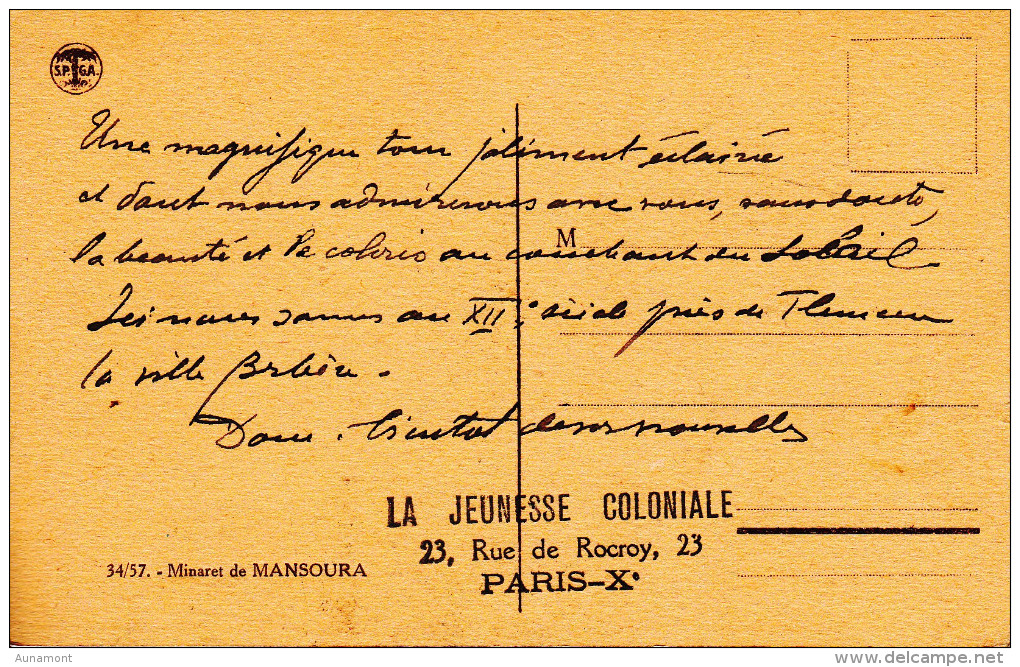 S.P.G.A.
Une magnifique tour joliment éclairée
et dont nous admirerons avec vous, sans doute,
la beauté et le coloris au couchant du Soleil
M
Ici nous sommes au XII siècle près de Tlemcen
la ville Berbère.
Donc. bientôt de vos nouvelles
LA JEUNESSE COLONIALE
23, Rue de Rocroy, 23
PARIS-Xe
34/57. - Minaret de MANSOURA
Aunamont
delcampe.net